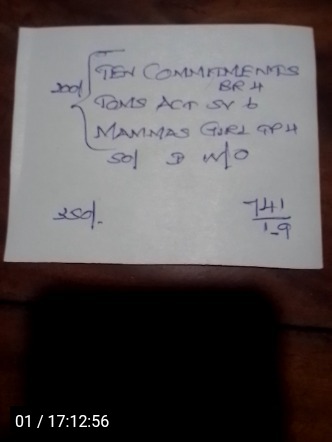 200/
TEN COMMITMENTS
BR 4
TOMS ACT SV 6
MAMMAS GIRL GP 4
50/ W/O
350/-
741
1-9
01 / 17:12:56